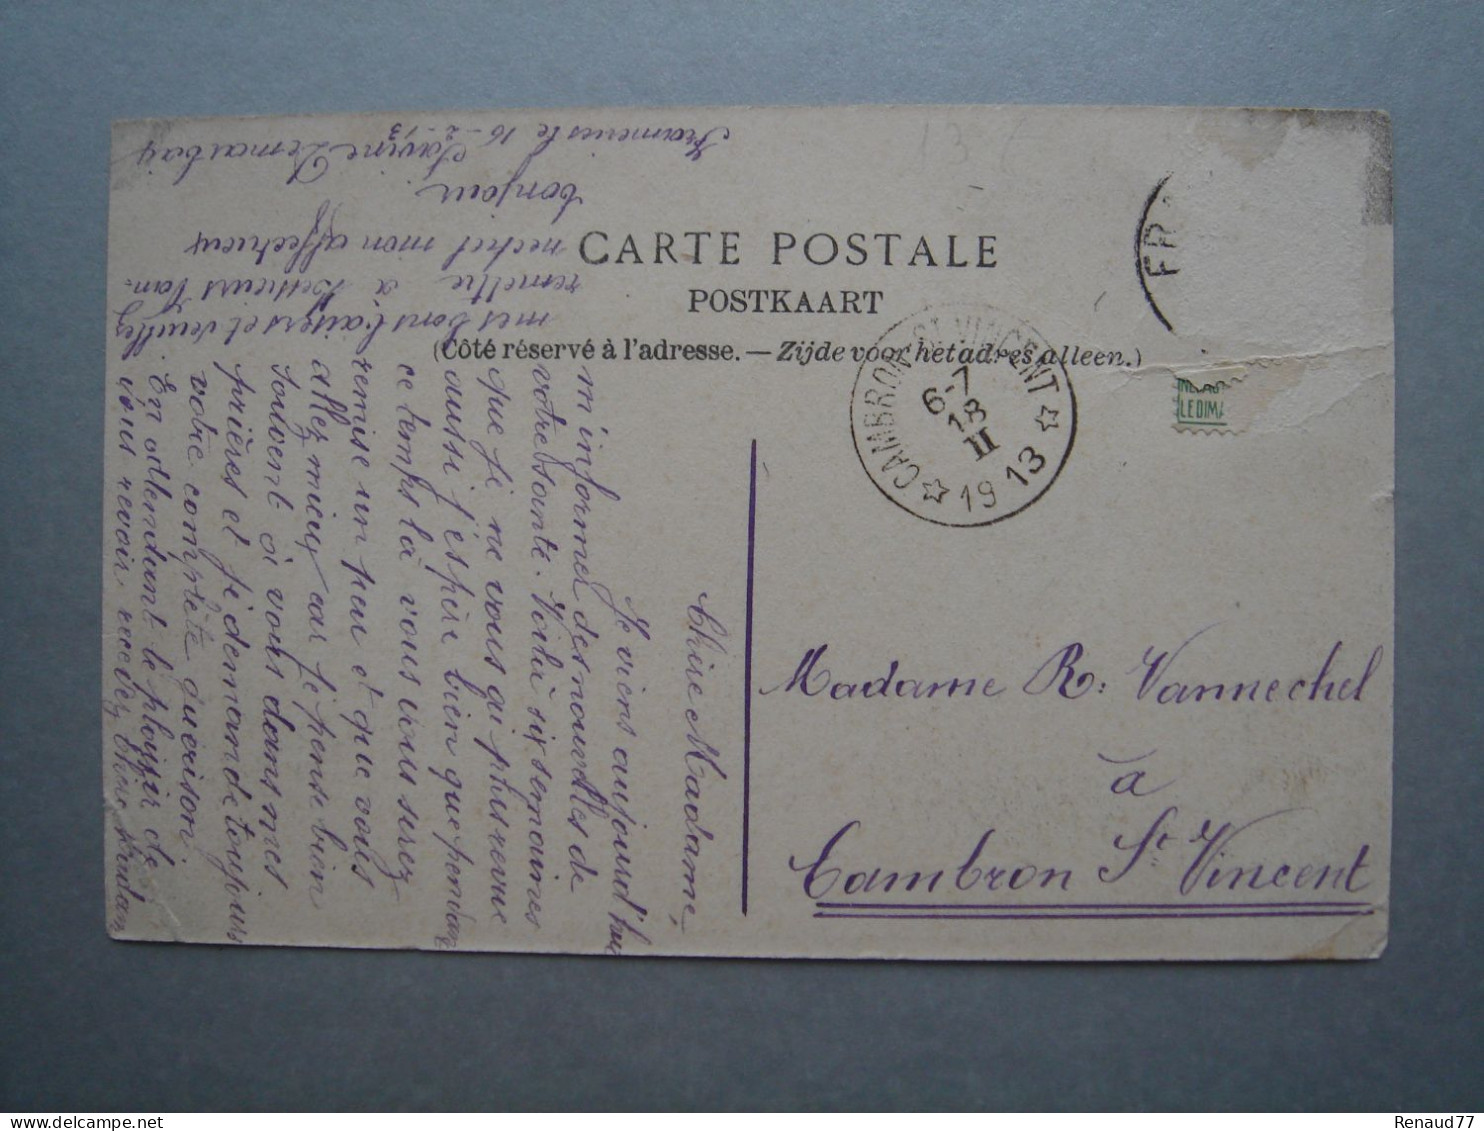 CARTE POSTALE
POSTKAART
(Côté réservé à l'adresse. — Zijde voor het adres alleen.)
FR
CAMBRON-ST VINCENT
6-7
18
II
1913
LEDIMA
13
Madame R. Vannechel
à
Cambron St. Vincent
Chère Madame,
Je viens aujourd'hui
m'informer des nouvelles de
votre santé. Voilà six semaines
que je ne vous ai plus revue
aussi j'espère bien que pendant
ce temps là vous vous serez
remise un peu et que vous
allez mieux car je pense bien
souvent à vous dans mes
prières et je demande toujours
votre complète guérison.
En attendant le plaisir de
vous revoir recevez Chère Madame
mes bons baisers et veuillez
remettre à Van-
nechel mon affectueux
bonjour
Savine Demarbaix
Frameries le 16-2-13
Renaud77